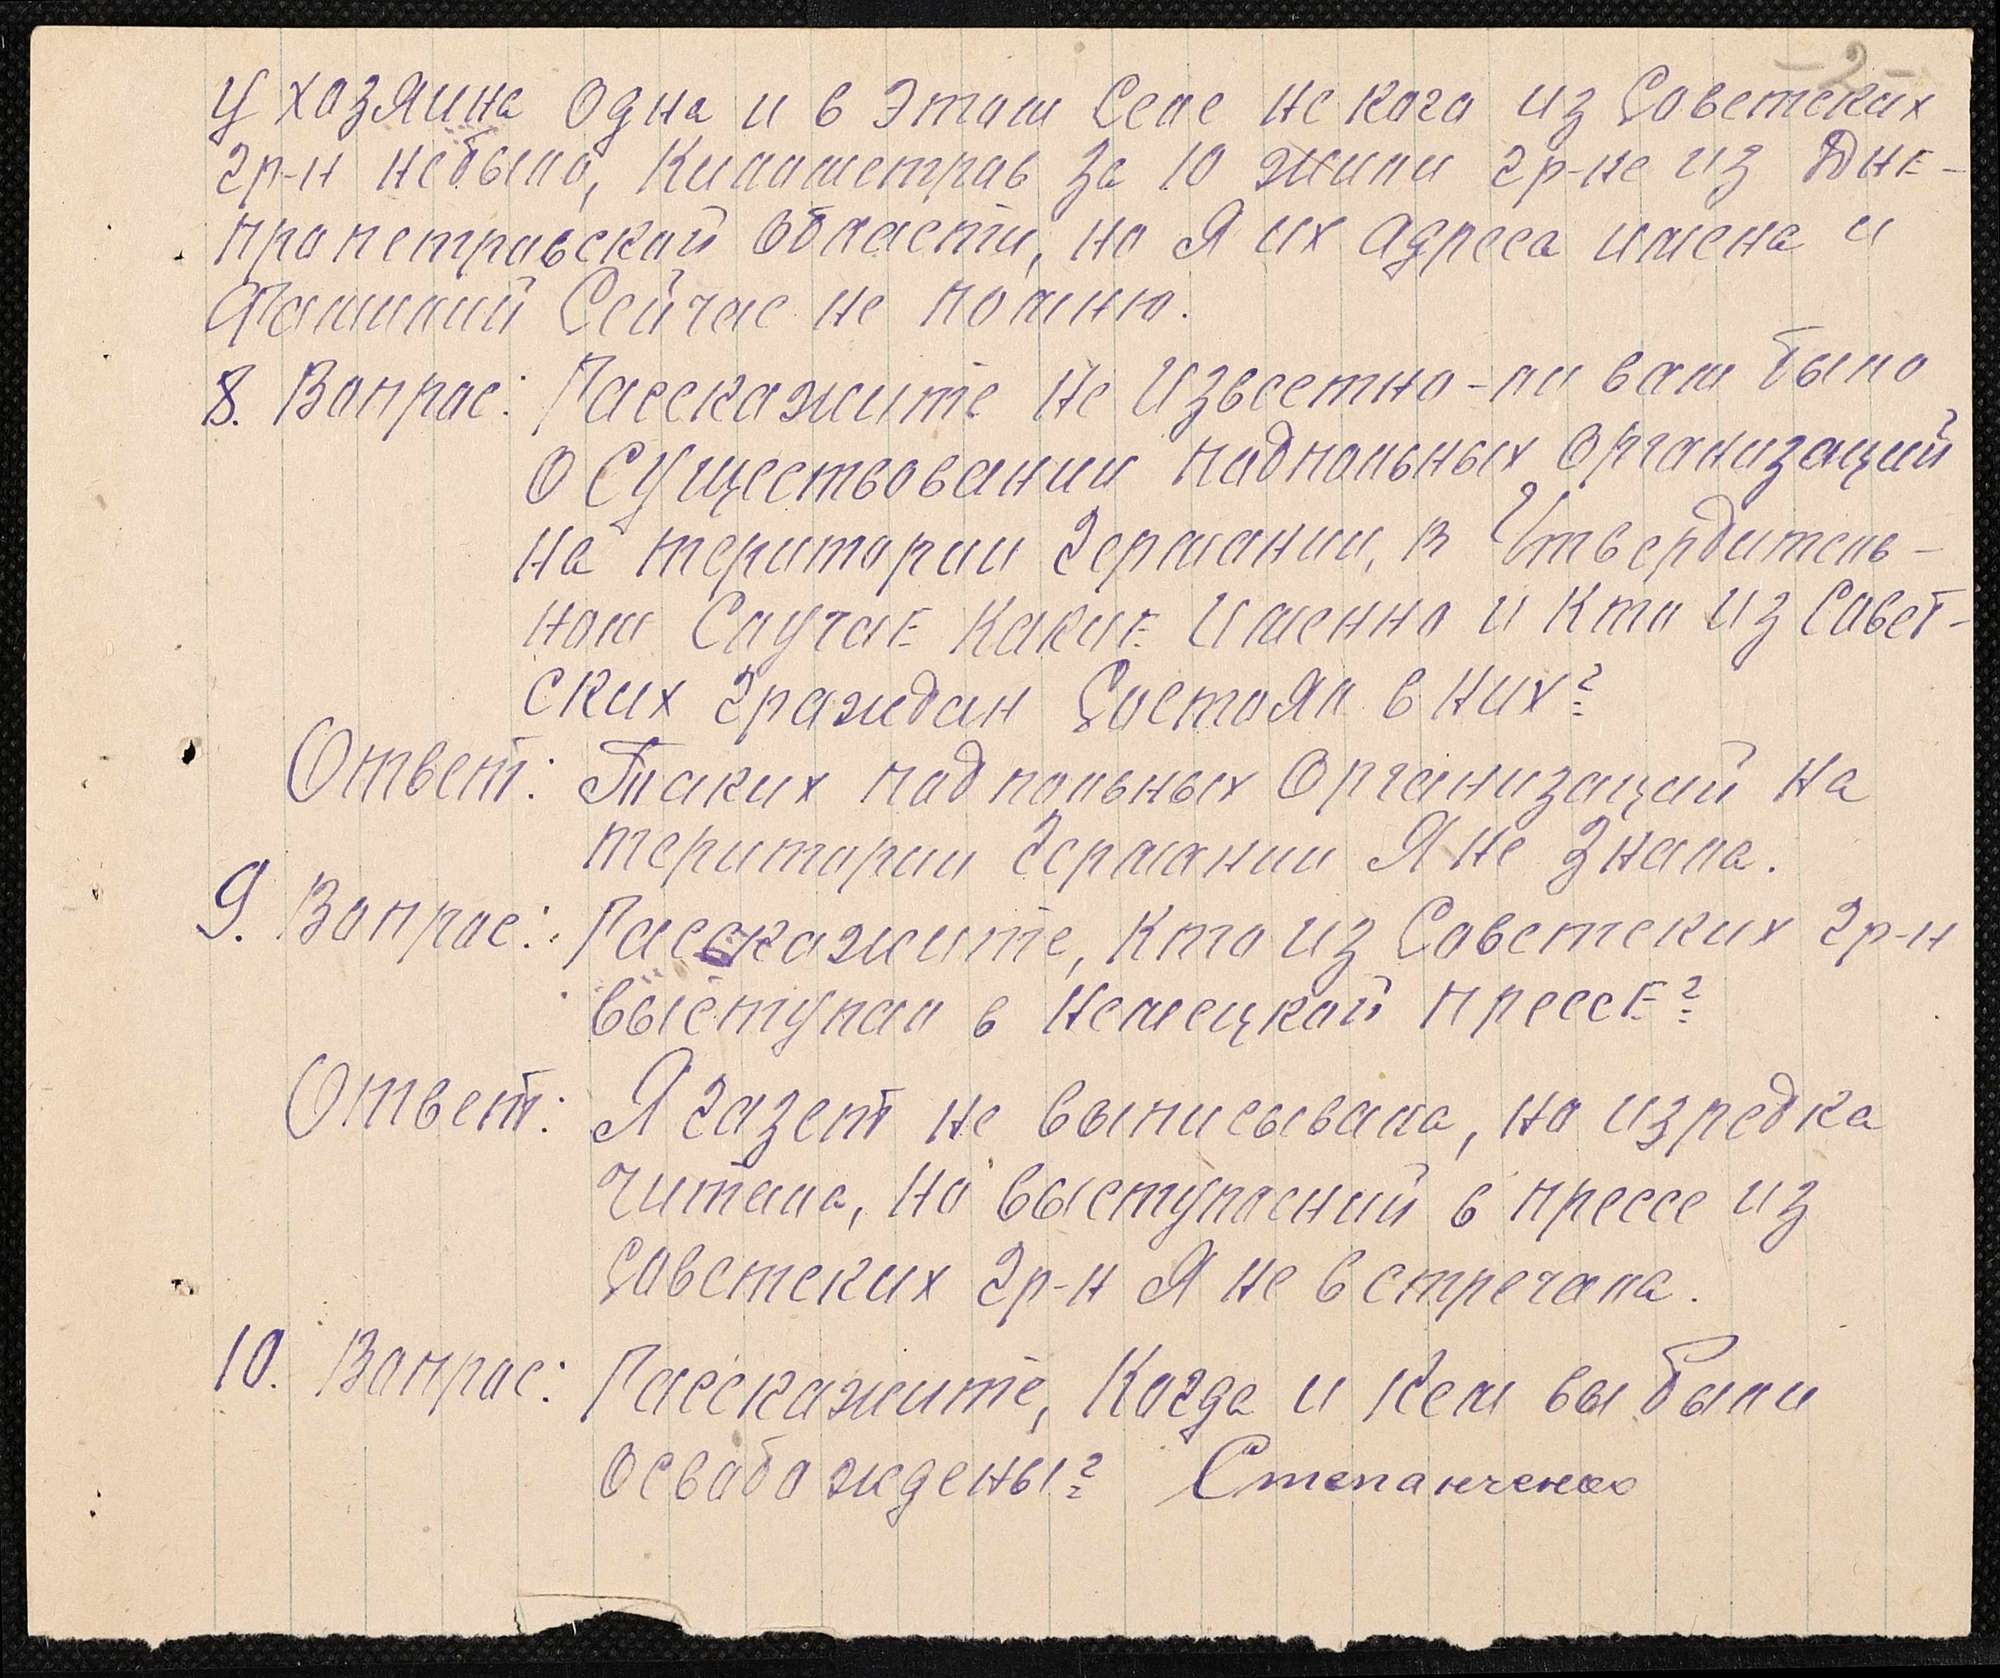 -2-
у хозяина одна и в этом селе не кого из Советских
гр-н небыло, Километров за 10 жили гр-не из Дне-
пропетровской области, но я их адреса имена и
Фамилий Сейчас не помню.
8. Вопрос: Расскажите не известно-ли вам было
о существовании подпольных организаций
на територии Германии, в Утвердитель-
ном Случае какие именно и кто из Совет-
ских граждан Состоял в них?
Ответ: Таких подпольных организаций на
територии Германии я не знала.
9. Вопрос: Расскажите, кто из Советских гр-н
выступал в немецкой прессе?
Ответ: Я газет не выписывала, но изредка
читала, но выступлений в прессе из
Советских гр-н я не встречала.
10. Вопрос: Расскажите, Когда и кем вы были
освобождены? Степанченко